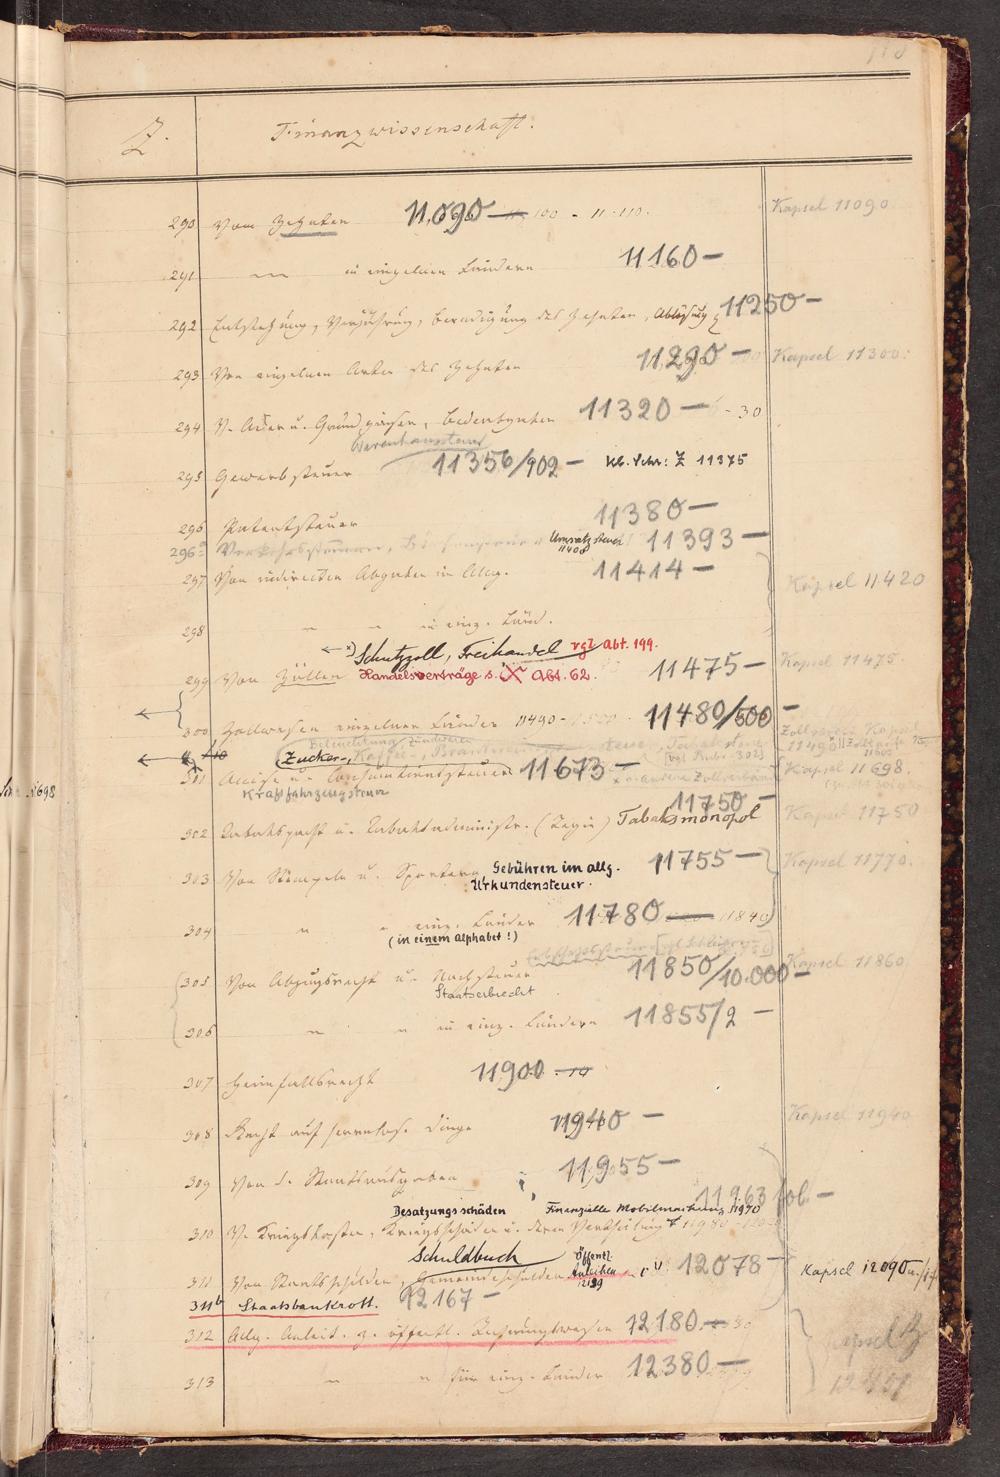 118
Z.
Finanzwissenschaft.
290 Vom Zehnten 11,090 — 100 - 11.110. Kapsel 11090
291 " in einzelnen Ländern 11160 —
292 Entstehung, Verjährung, Beendigung des Zehnten, Ablösung 11250 —
293 Von einzelnen Arten des Zehnten 11,290 — Kapsel 11300.
294 V. Acker u. Grundzinsen, Bodenzehnten 11320 — - 30
Warenhaussteuer
295 Gewerbsteuer 11356/902 — Kl. Schr: Z 11375
296 Patentsteuer 11380 —
296a Verkehrssteuern, Umsatzsteuer 11393 —
11400
297 Von indirecten Abgaben im Allg. 11414 — Kapsel 11420
298 " " in einz. Länd.
Schutzzoll, Freihandel vgl. Abt. 199.
299 Von Zöllen Handelsverträge s. Abt. 62. 11475 — Kapsel 11475.
300 Zollwesen einzelner Länder 11490 - 11480/500 — Zollverein Kapsel
11490
Beleuchtung Zündwaren
Zucker-, Kaffee-, Branntwein steuer, Tabaksteuer
[vgl. Rubr. 302]
301 Accise u. Consumtionssteuer 11673 — Kapsel 11698.
Kraftfahrzeugsteuer
11750 —
302 Tabakspacht u. Tabaksadministr. (Regie) Tabaksmonopol Kapsel 11750
303 Von Stempeln u. Sporteln, Gebühren im allg. 11755 — Kapsel 11770.
Urkundensteuer.
304 " " einz. Länder 11780 — 11840
(in einem Alphabet!)
305 Von Abzugsrecht u. Nachsteuer 11850/10.000 — Kapsel 11860
Staatserbrecht
306 " " in einz. Ländern 11855/2 —
307 Heimfallsrecht 11900
308 Recht auf herrenlose Dinge 11940 — Kapsel 11940
309 Von d. Staatsausgaben 11955 —
11963 fol. —
Besatzungsschäden Finanzielle Mobilmachung 11970
310 V. Kriegskosten, Kriegsschäden u. deren Vertheilung
Schuldbuch Öffentl.
Anleihen
311 Von Staatsschulden, Gemeindeschulden 12078 — Kapsel 12090
311b Staatsbankrott. 12167 —
312 Allg. Anleit. z. öffentl. Rechnungswesen 12180 —
313 " " für einz. Länder 12380 —